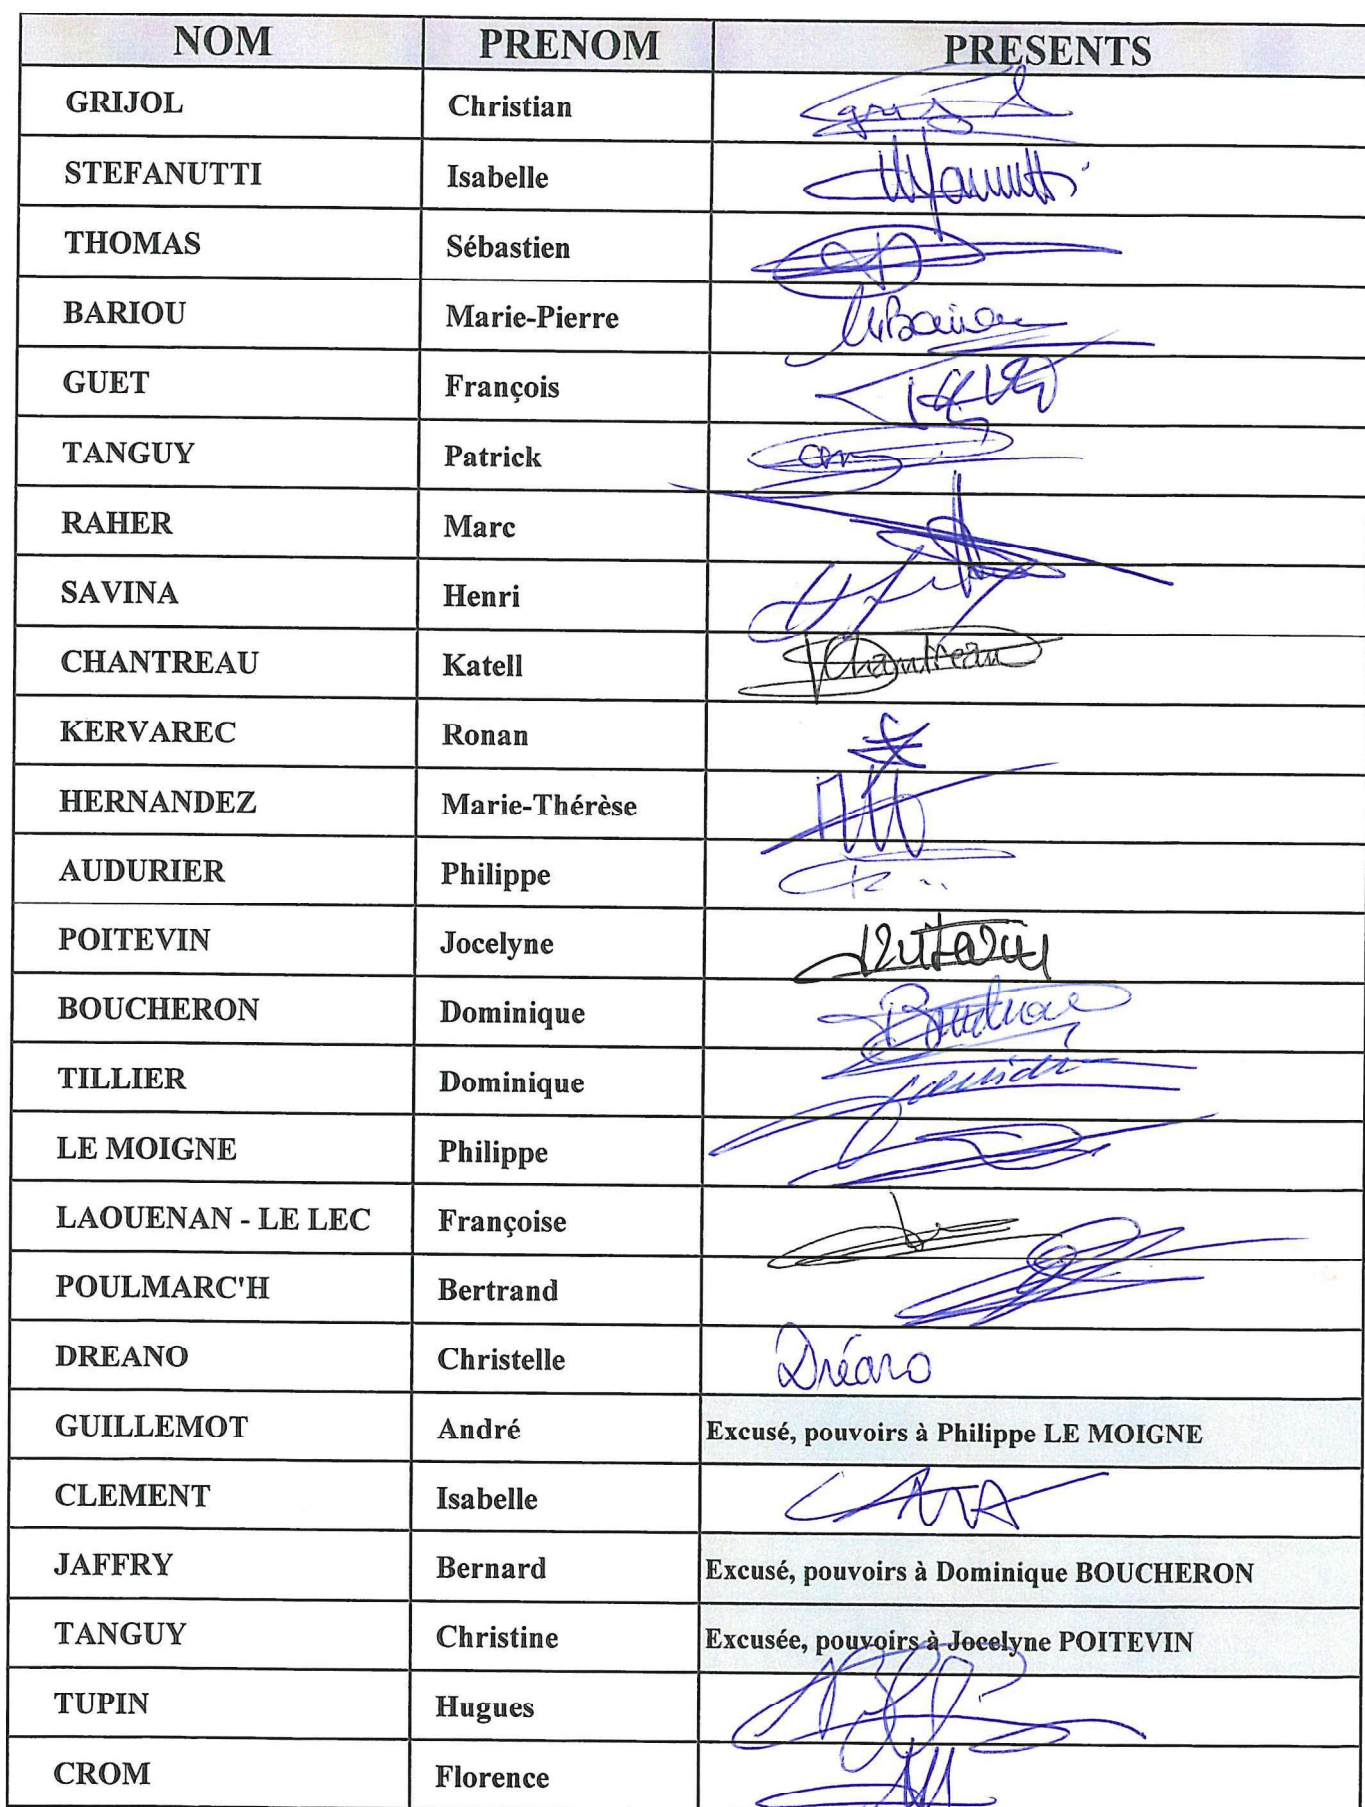 NOM PRENOM PRESENTS
GRIJOL Christian
STEFANUTTI Isabelle
THOMAS Sébastien
BARIOU Marie-Pierre
GUET François
TANGUY Patrick
RAHER Marc
SAVINA Henri
CHANTREAU Katell Chantreau
KERVAREC Ronan
HERNANDEZ Marie-Thérèse
AUDURIER Philippe
POITEVIN Jocelyne
BOUCHERON Dominique
TILLIER Dominique
LE MOIGNE Philippe
LAOUENAN - LE LEC Françoise
POULMARC'H Bertrand
DREANO Christelle Dréano
GUILLEMOT André Excusé, pouvoirs à Philippe LE MOIGNE
CLEMENT Isabelle
JAFFRY Bernard Excusé, pouvoirs à Dominique BOUCHERON
TANGUY Christine Excusée, pouvoirs à Jocelyne POITEVIN
TUPIN Hugues
CROM Florence